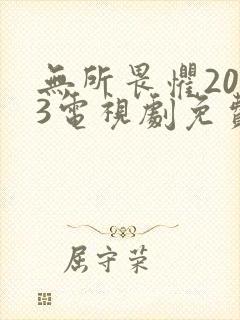 無所畏懼20
3電視劇免費
屈守荣